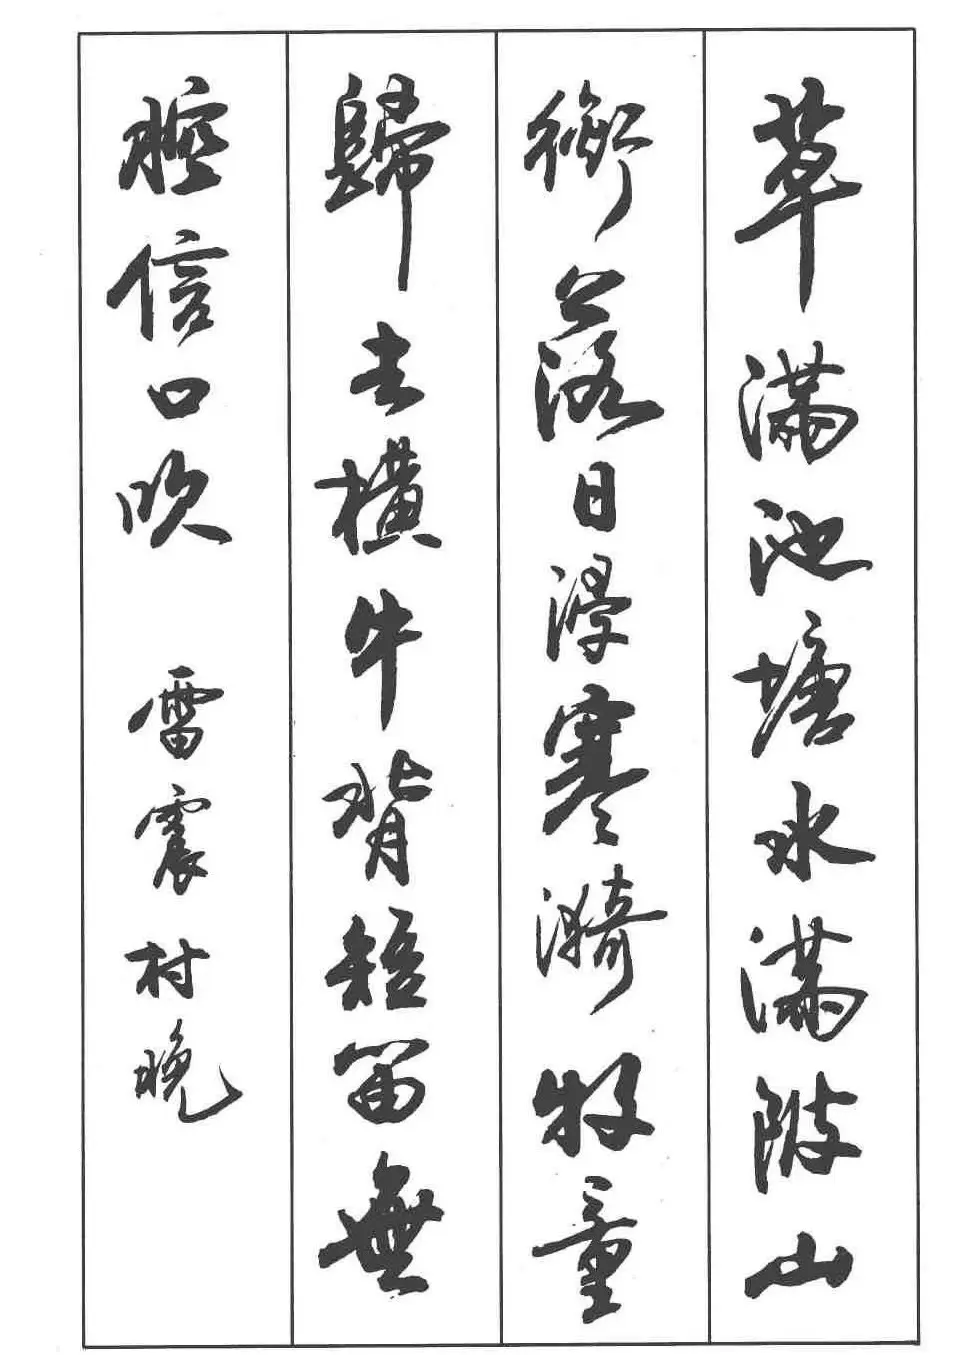 草满池塘水满陂山
衔落日浸寒漪牧童
歸去横牛背短笛無
腔信口吹 雷震村晚